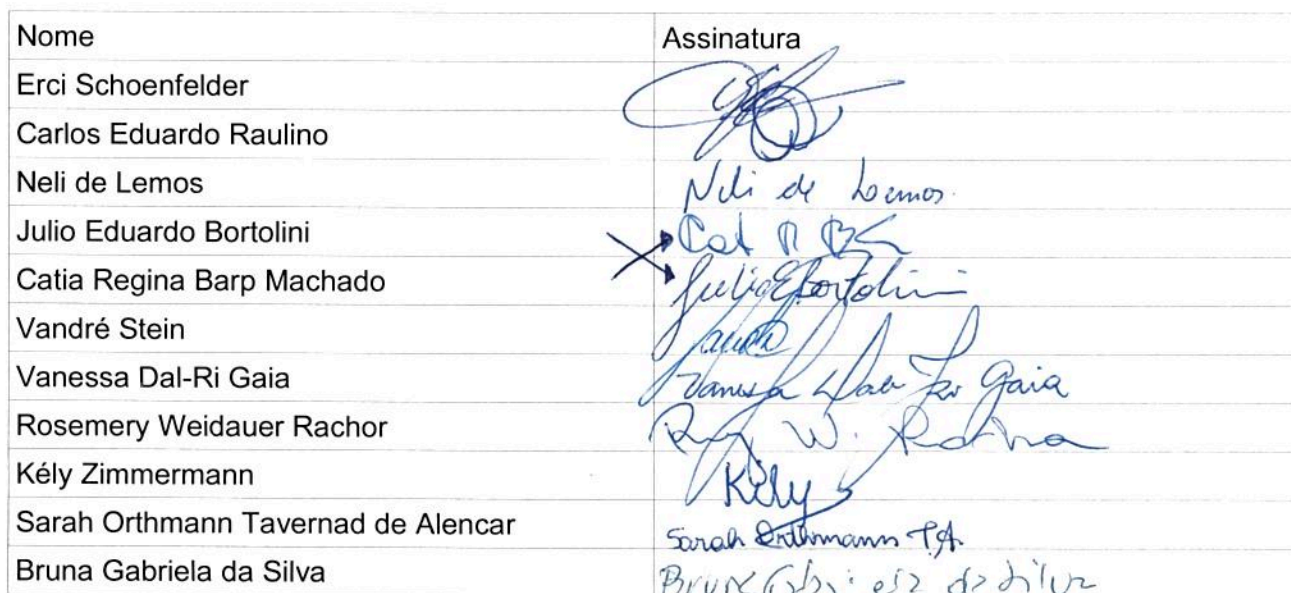 Nome Assinatura
Erci Schoenfelder
Carlos Eduardo Raulino
Neli de Lemos Neli de Lemos
Julio Eduardo Bortolini Cat R B
Catia Regina Barp Machado Julio E Bortolini
Vandré Stein
Vanessa Dal-Ri Gaia Vanessa Dal Gaia
Rosemery Weidauer Rachor W.
Kély Zimmermann Kély
Sarah Orthmann Tavernad de Alencar Sarah Orthmann T.A.
Bruna Gabriela da Silva Bruna Gabriela da Silva